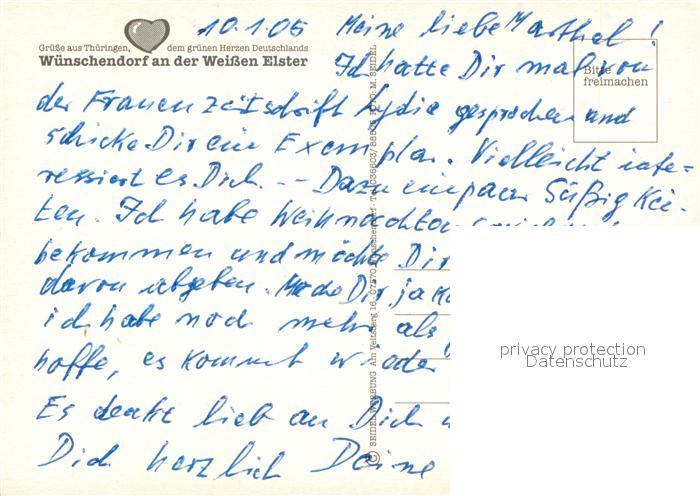 10.1.05 Meine liebe Marthel!
Grüße aus Thüringen, dem grünen Herzen Deutschlands
Wünschendorf an der Weißen Elster
Ich hatte Dir mal von
Bitte
freimachen
der Frauenzeitschrift Lydia gesprochen und
schicke Dir ein Exemplar. Vielleicht inte=
ressiert es Dich. -- Dazu ein paar Süßigkei-
ten. Ich habe Weihnachten
bekommen und möchte Dir
davon abgeben. Dir, ja
ich habe noch mehr, als
hoffe, es kommt wieder
Es denkt lieb an Dich
Dich herzlich Deine
© SEIDEL WERBUNG Am Veitsberg 16 · 07570 Wünschendorf · FOTO: M. SEIDEL
privacy protection
Datenschutz